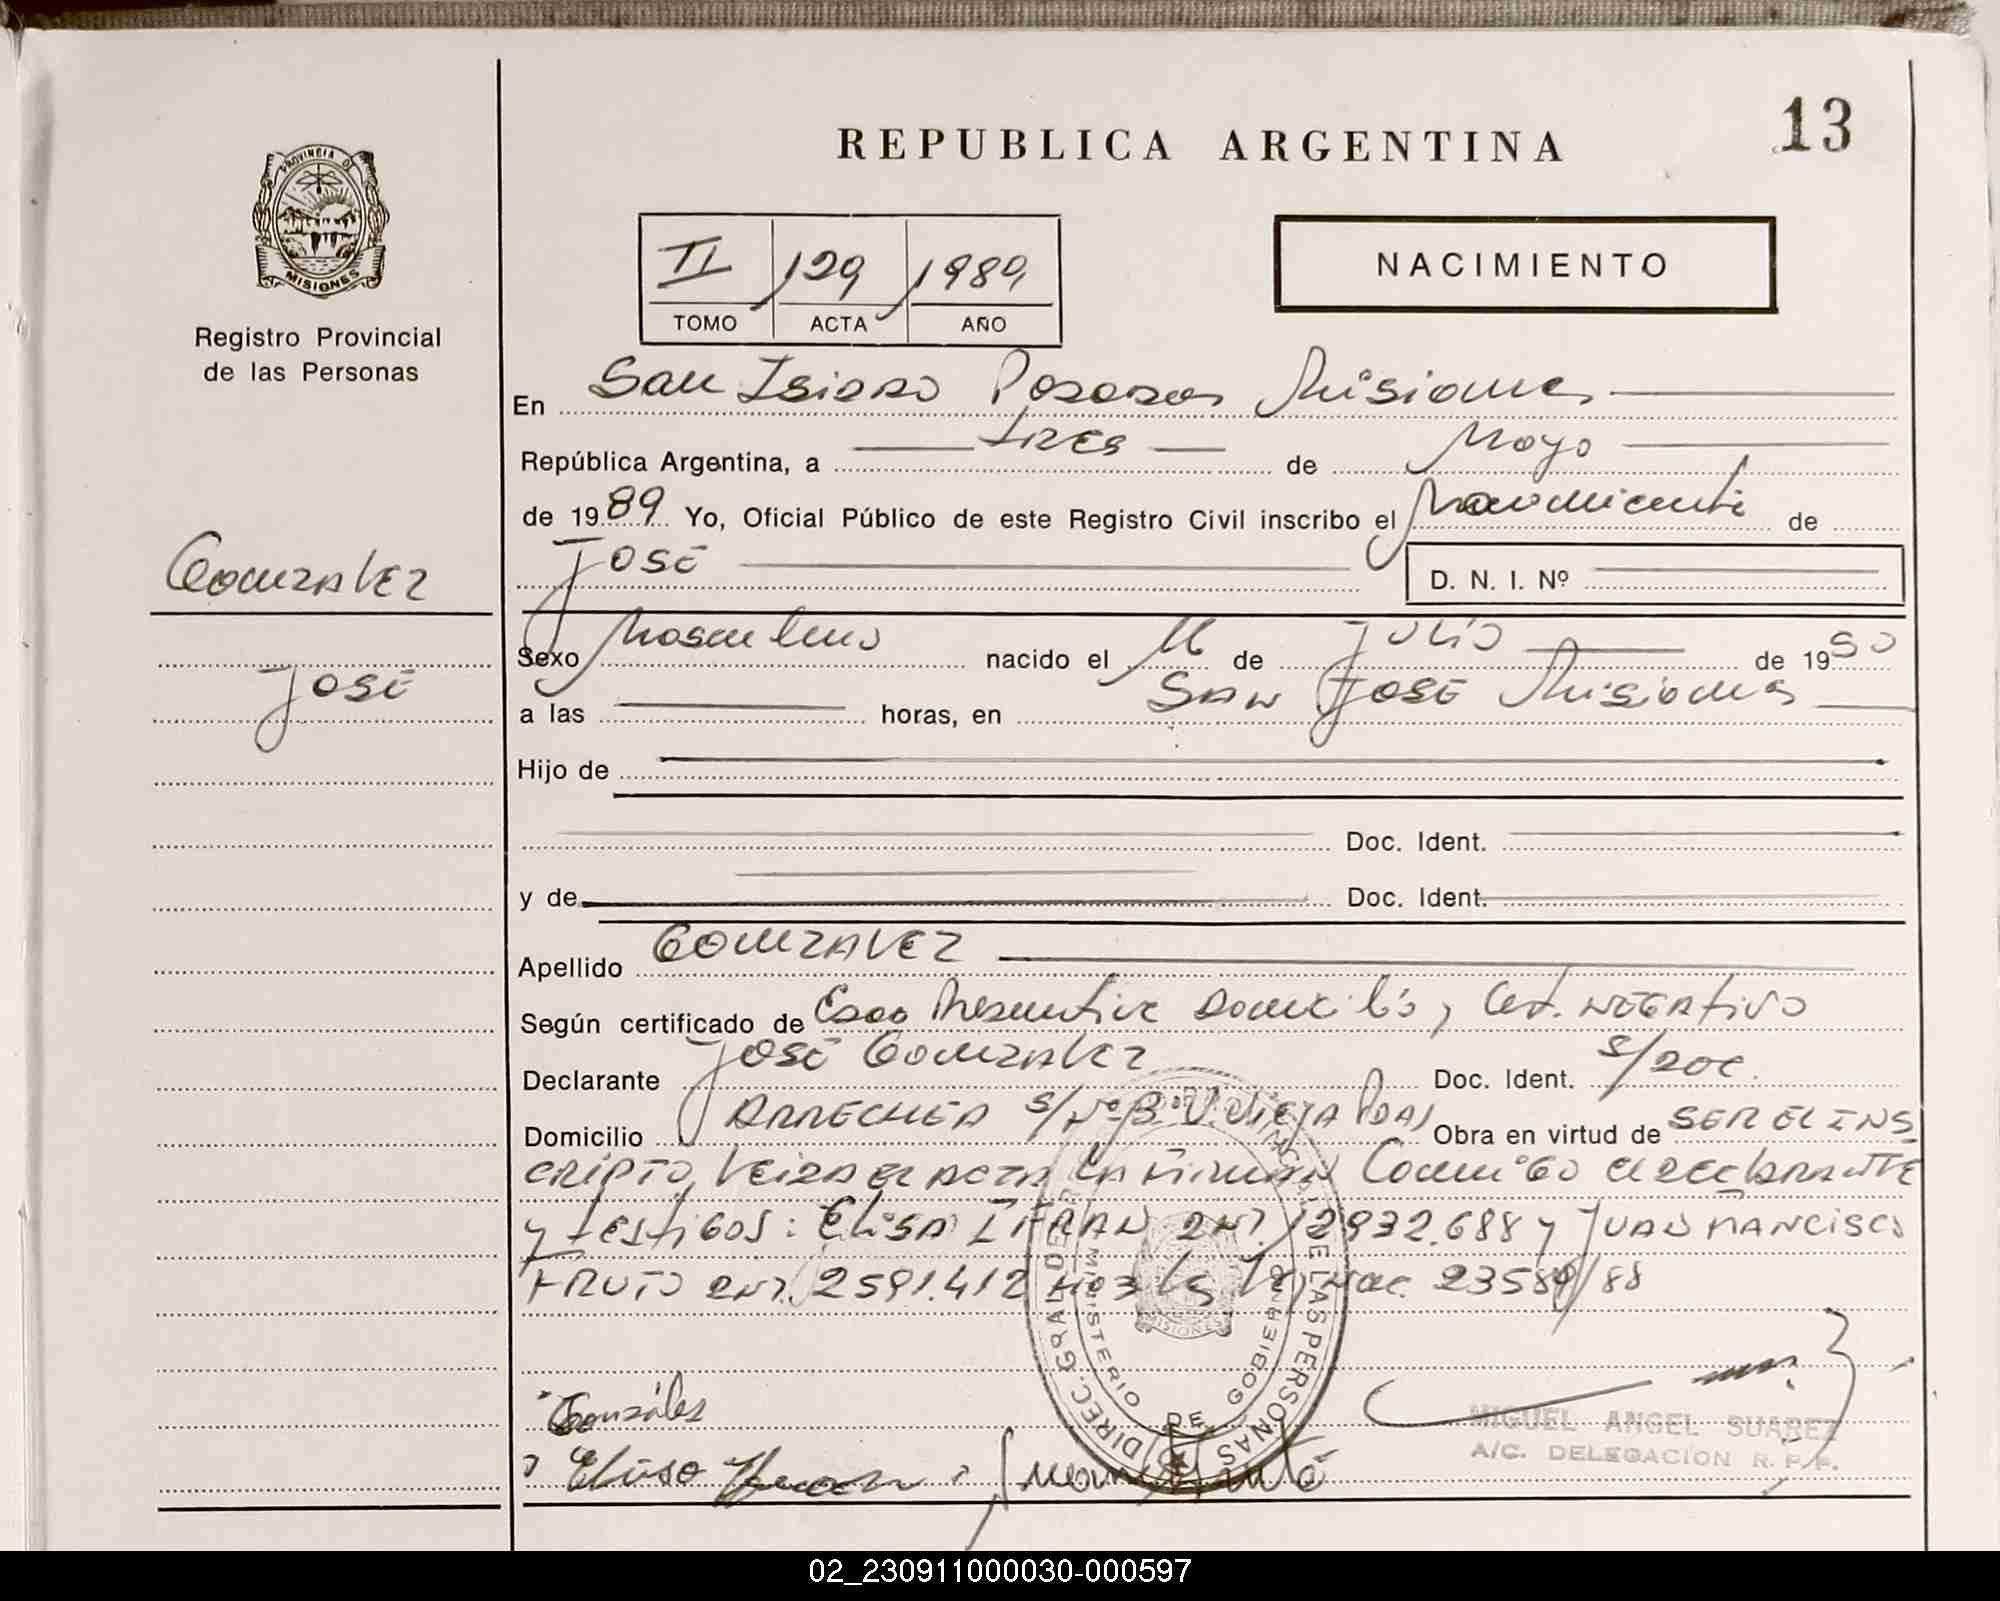 REPUBLICA ARGENTINA
13
PROVINCIA DE
MISIONES
Registro Provincial
de las Personas
II 129 1989
TOMO ACTA AÑO
NACIMIENTO
En San Isidro Posadas Misiones
República Argentina, a tres de Mayo
de 1989 Yo, Oficial Público de este Registro Civil inscribo el Nacimiento de
José
D. N. I. Nº
Gonzalez
José
Sexo Masculino nacido el 16 de Julio de 1950
a las horas, en San José Misiones
Hijo de
Doc. Ident.
y de Doc. Ident.
Apellido GONZALEZ
Según certificado de Edad Presuntiva Domicilio, Cert. NEGATIVO
Declarante José Gonzalez Doc. Ident. S/Doc.
Domicilio ARRECHEA S/Nº B. V. Vieja Pdas Obra en virtud de SER EL INS
CRIPTO, Leida el acta la firman Conmigo el declarante
y testigos: Elisa DNI. 12932.688 y JUAN FRANCISCO
FRUTO DNI. 2591.412 23589/88
DIREC. GRAL DEL REG. PROVINCIAL DE LAS PERSONAS
MINISTERIO DE GOBIERNO
MISIONES
Gonzáles
MIGUEL ANGEL SUAREZ
A/C. DELEGACION R. P. P.
02_230911000030-000597